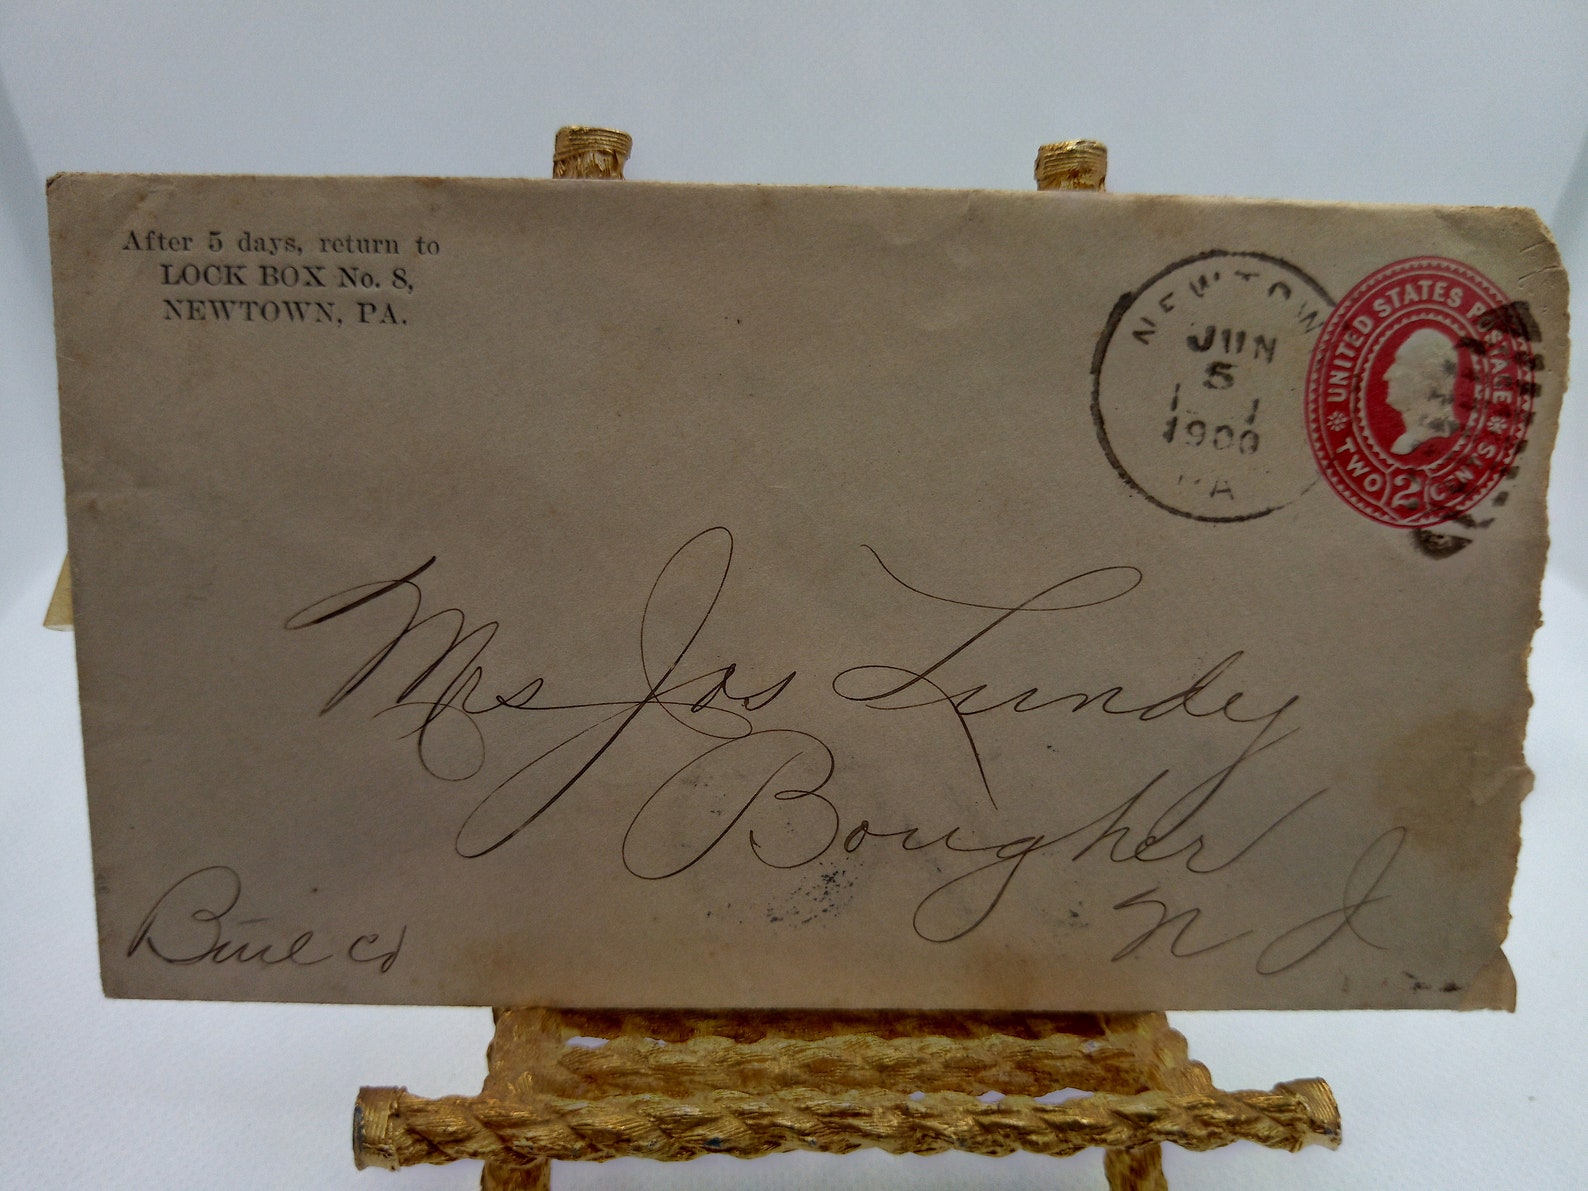 After 5 days, return to
LOCK BOX No. 8,
NEWTOWN, PA.
NEWTOW
JUN
5
1900
PA
UNITED STATES POSTAGE
TWO 2 CENTS
Mrs Jos Lundy
Bougher
N J
Burl Co